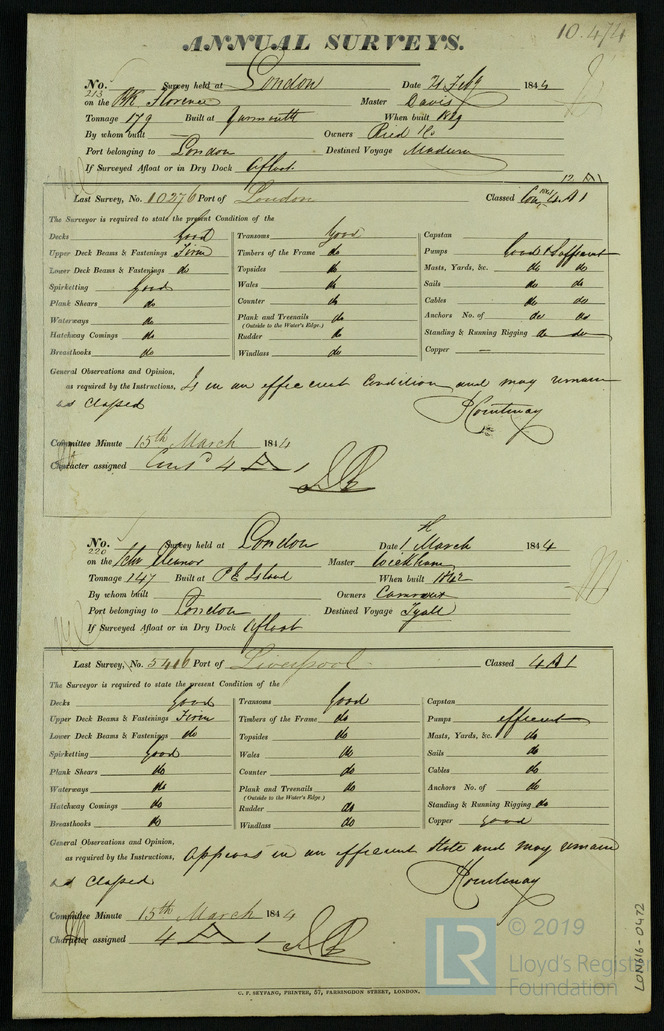 10.474
ANNUAL SURVEYS.
No. 213 Survey held at London Date 21 Feby 1844
on the Bk Florence Master Davis
Tonnage 179 Built at Yarmouth When built
By whom built Owners Reed & Co
Port belonging to London Destined Voyage Madeira
If Surveyed Afloat or in Dry Dock Afloat
12 A1
Last Survey, No. 10276 Port of London Classed Con. 4 A1
The Surveyor is required to state the present Condition of the
Decks Good Transoms Good Capstan
Upper Deck Beams & Fastenings Firm Timbers of the Frame do Pumps Good & Sufficient
Lower Deck Beams & Fastenings do Topsides do Masts, Yards, &c. do do
Spirketting good Wales do Sails do do
Plank Shears do Counter do Cables do do
Waterways do Plank and Treenails do Anchors No. of do do
(Outside to the Water's Edge.)
Hatchway Comings do Rudder do Standing & Running Rigging do do
Breasthooks do Windlass do Copper —
General Observations and Opinion,
as required by the Instructions, Is in an efficient Condition and may remain
as Classed
Committee Minute 15th March 1844
Character assigned Con'd 4 A 1
No. 220 Survey held at London Date 1 March 1844
on the Schr Eleanor Master Wickham
Tonnage 147 Built at P E Island When built 1842
By whom built Owners
Port belonging to London Destined Voyage Fyall
If Surveyed Afloat or in Dry Dock Afloat
Last Survey, No. 5416 Port of Liverpool Classed 4 A 1
The Surveyor is required to state the present Condition of the
Decks Good Transoms Good Capstan
Upper Deck Beams & Fastenings Firm Timbers of the Frame do Pumps efficient
Lower Deck Beams & Fastenings do Topsides do Masts, Yards, &c. do
Spirketting Good Wales do Sails do
Plank Shears do Counter do Cables do
Waterways do Plank and Treenails do Anchors No. of do
(Outside to the Water's Edge.)
Hatchway Comings do Rudder do Standing & Running Rigging do
Breasthooks do Windlass do Copper good
General Observations and Opinion,
as required by the Instructions, Appears in an efficient State and may remain
as Classed
Committee Minute 15th March 1844
Character assigned 4 A 1
C. F. SEYFANG, PRINTER, 57, FARRINGDON STREET, LONDON.
LON616-0472
LR © 2019
Lloyd's Register
Foundation